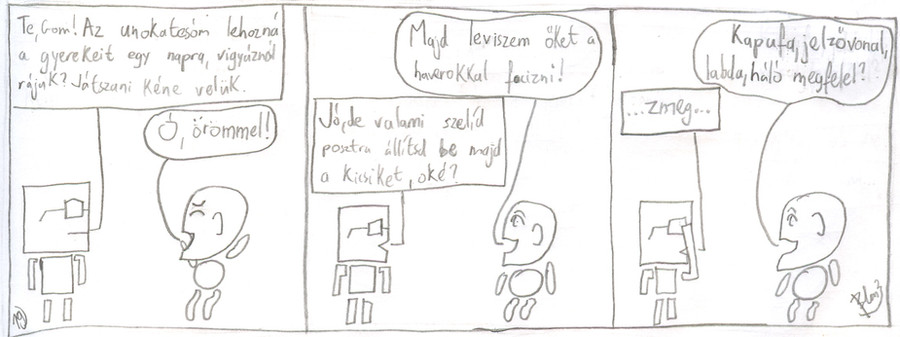 Te, Gom! Az unokatesóm lehozná
a gyerekeit egy napra, vigyáznál
rájuk? Játszani kéne velük.
Ó, örömmel!
Majd leviszem őket a
haverokkal focizni!
Jó, de valami szelíd
posztra állítsd be majd
a kicsiket, oké?
Kapufa, jelzővonal,
labda, háló megfelel?
...zmeg...